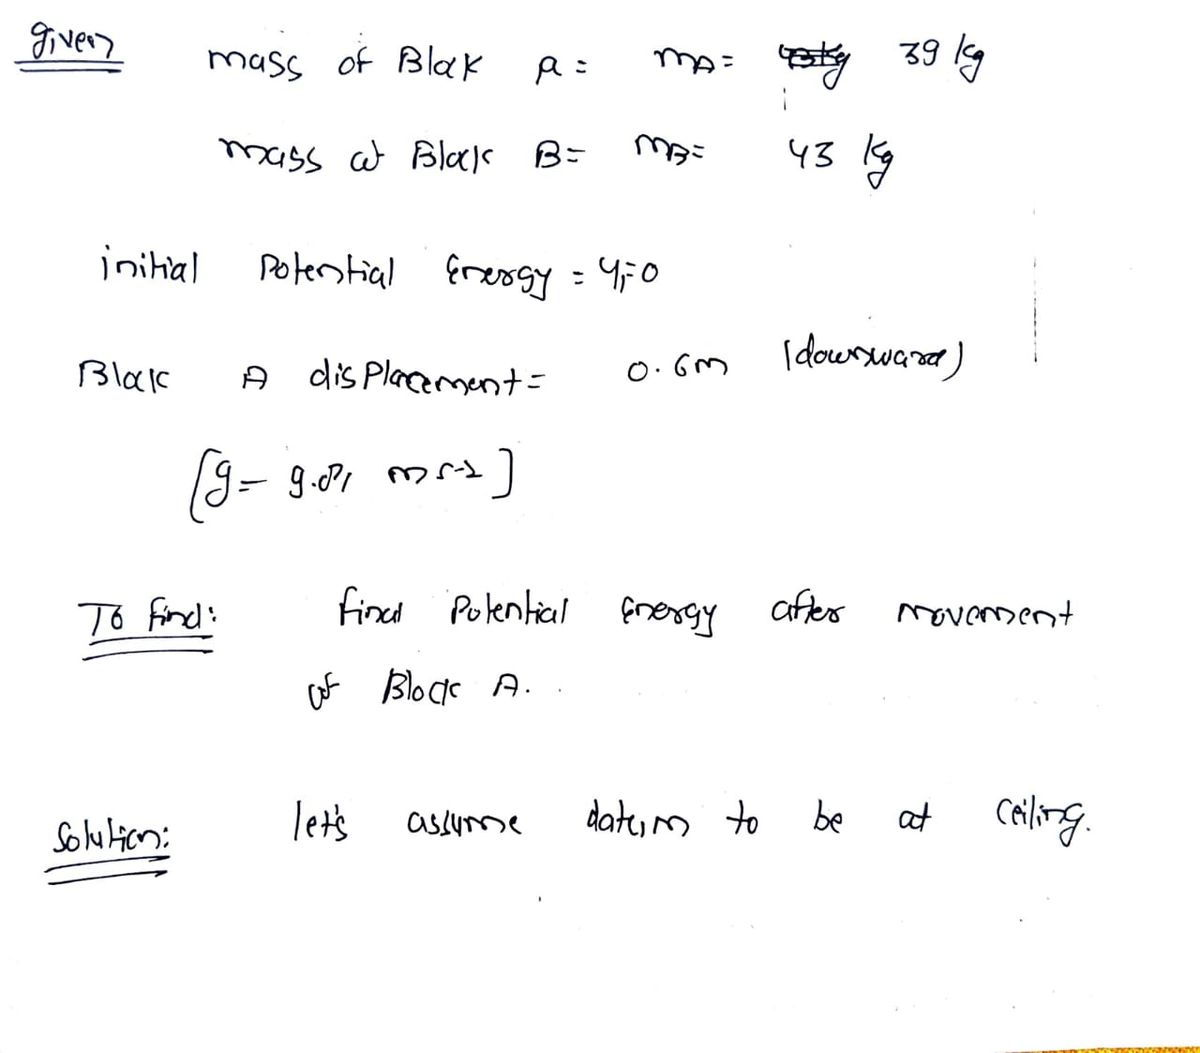 given mass of Block A = mA = 39 kg
mass of Block B = mB = 43 kg
initial Potential Energy = U1=0
Block A displacement = 0.6m (downward)
[g = 9.81 ms-2]
To find: final Potential Energy after movement
of Block A.
Solution: let's assume datum to be at ceiling.